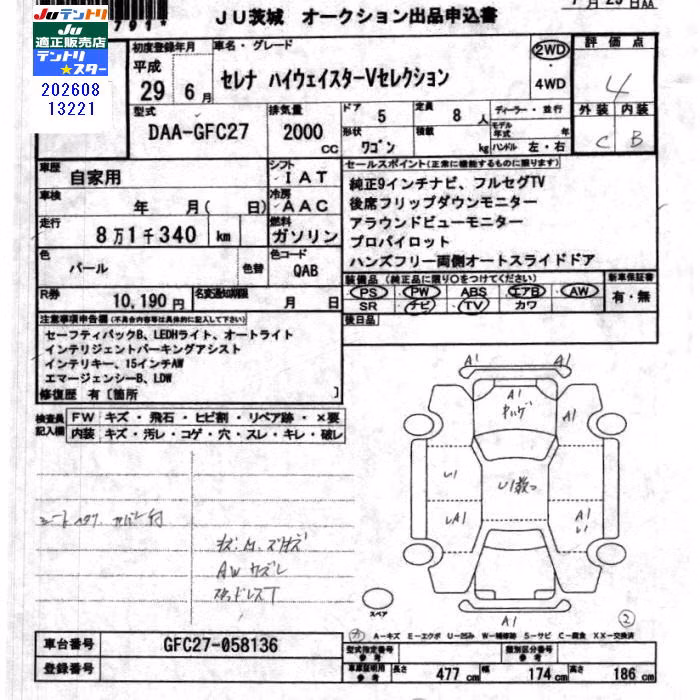 JU茨城 オークション出品申込書
791*
7月25日AA
Juテントリ
Ju
適正販売店
テントリ
★スター
202608
13221
初度登録年月
平成
29年6月
車名・グレード
セレナ ハイウェイスターVセレクション
2WD
4WD
評価点
4
型式
DAA-GFC27
排気量
2000cc
ドア
5
定員
8人
ディーラー・並行
形状
ワゴン
積載
kg
モデル年式
年
ハンドル 左・右
外装
内装
C
B
車歴
自家用
シフト
IAT
セールスポイント(正常に機能するものに限ります)
純正9インチナビ、フルセグTV
後席フリップダウンモニター
アラウンドビューモニター
プロパイロット
ハンズフリー両側オートスライドドア
車検
年 月( 日)
冷房
AAC
走行
8万1千340 km
燃料
ガソリン
色
パール
色替
色コード
QAB
R券
10,190円
名変通知期限
月 日
装備品(純正品に限り○をつけてください)
PS PW ABS エアB AW
SR ナビ TV カワ
新車保証書
有・無
後日品
注意事項申告欄(不具合内容等は具体的に記入して下さい)
セーフティパックB、LEDHライト、オートライト
インテリジェントパーキングアシスト
インテリキー、15インチAW
エマージェンシーB、LDW
修復歴 有〔箇所 〕
検査員記入欄
FW キズ・飛石・ヒビ割・リペア跡・×要
内装 キズ・汚レ・コゲ・穴・スレ・キレ・破レ
A1
A1
A1
キハゲ
A1
U1
U1数つ
UA1
A1
U1
A1
AWカズレ
スタッドレスT
スペア
2
カ A-キズ E-エクボ U-凹み W-補修跡 S-サビ C-腐食 XX-交換済
車台番号
GFC27-058136
登録番号
型式指定番号
参考
類別区分番号
参考
車庫証明用
参考
長さ 477cm 幅 174cm 高さ 186cm